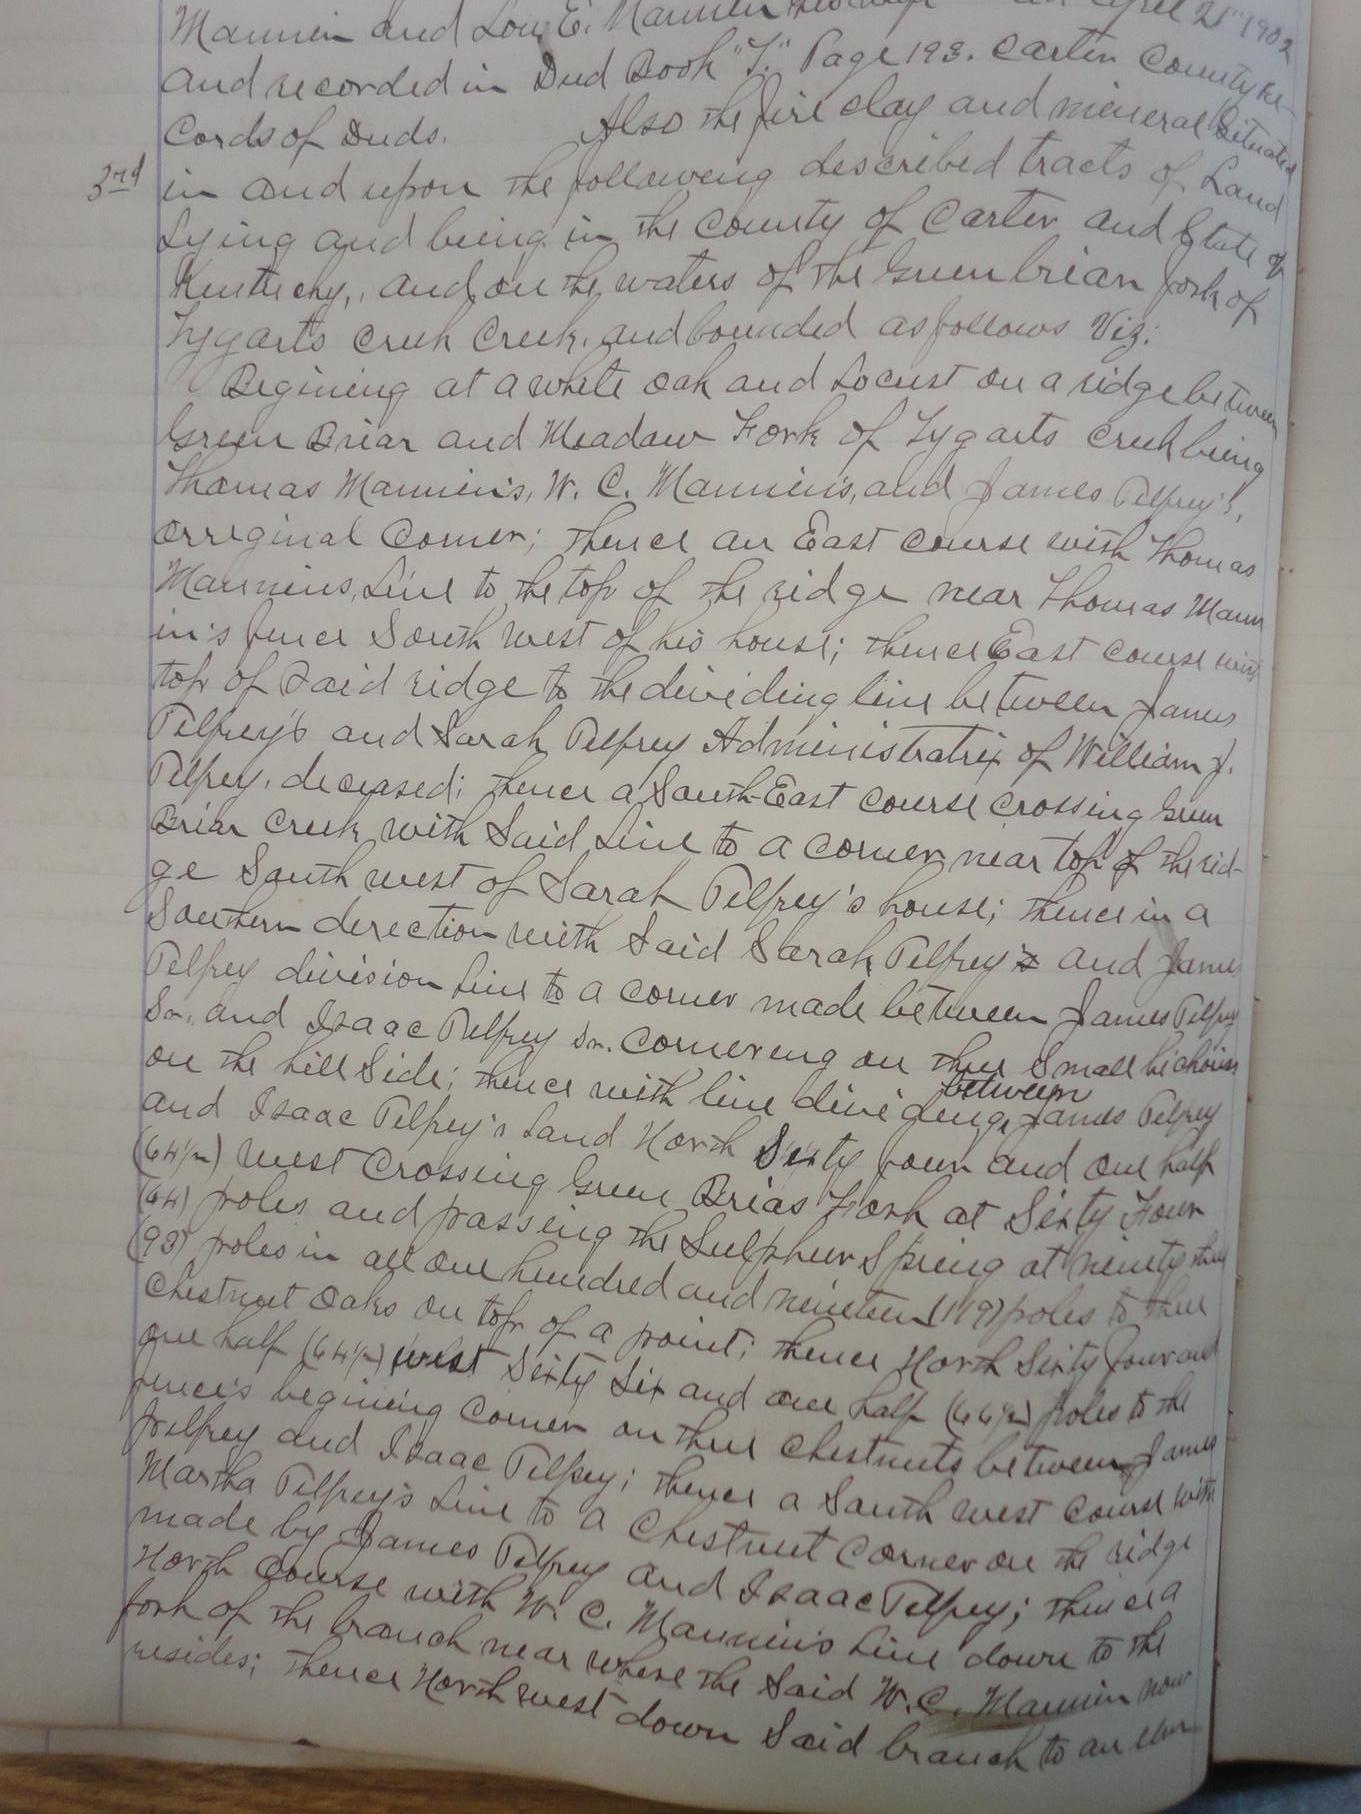 Mannin and Lou E. Mannin his wife on April 21st 1902
and recorded in Deed Book "I." Page 193. Carter County Re-
cords of Deeds. Also the fire clay and mineral Situated
3rd in and upon the following described tracts of Land
Lying and being in the County of Carter and State of
Kentucky, and on the waters of the Green brian fork of
Tygarts Creek Creek, and bounded as follows Viz:
Begining at a white oak and Locust on a ridge between
Green Briar and Meadow Fork of Tygarts Creek being
Thomas Mannin's, W. C. Mannin's, and James Pelfrey's,
orreginal Corner; thence an East Course with Thomas
Mannins, Line to the top of the ridge near Thomas Mann
in's fence South west of his house; thence East course with
top of said ridge to the dividing line between James
Pelfrey's and Sarah Pelfrey Administratrix of William J.
Pelfrey, deceased; thence a South-East course crossing Green
Briar Creek with Said Line to a corner near top of the rid-
ge South west of Sarah Pelfrey's house; thence in a
Southern direction with Said Sarah Pelfrey's and James
Pelfrey division Line to a corner made between James Pelfrey
Sr. and Isaac Pelfrey Sr. cornering on three Small hickories
on the hill Side; thence with line divideing between James Pelfrey
and Isaac Pelfrey's Land North Sixty four and one half
(64½) West Crossing Green Brias Fork at Sixty Four
(64) poles and passing the Sulpher Spring at ninety three
(93) poles in all one hundred and nineteen (119) poles to three
Chestnut Oaks on top of a point; thence North Sixty four and
one half (64½) west Sixty Six and one half (66½) poles to the
fence's begining Corner on three Chestnuts between James
Pelfrey and Isaac Pelfrey; thence a South west Course with
Martha Pelfrey's Line to a Chestnut Corner on the ridge
made by James Pelfrey and Isaac Pelfrey; thence a
North Course with W. C. Mannin's Line down to the
fork of the branch near where the Said W. C. Mannin now
resides; thence North west down Said branch to an elm